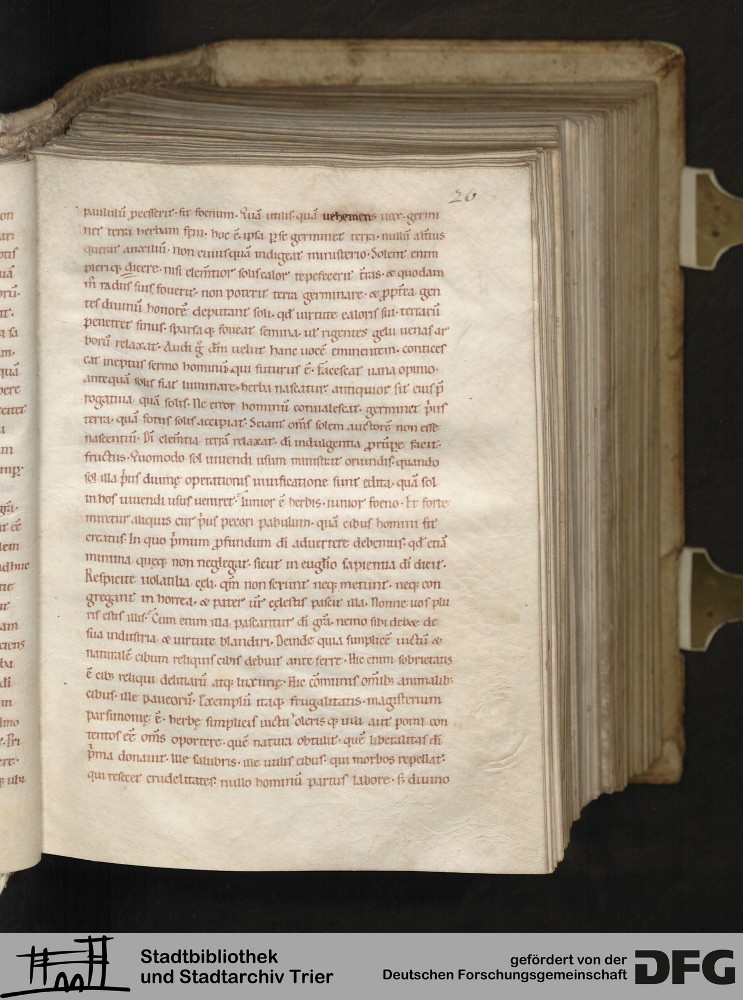 26
paululũ p̃cesserit· fit foenum· Quã utilis· quã uehemens uox· germi
net terra herbam fęni· hoc ẽ· ipsa p̱ se germinet terra· nulliũ alterius
querat auxiliũ· non cuiusquã indigeat ministerio· Solent enim
pleriq; dicere· nisi clem̃tior solis calor tepefecerit t̃ras· & quodam
m̃ radiis suis fouerit· non poterit terra germinare· & ꝓpt̃ea gen
tes diuinũ honorẽ deputant soli· qđ uirtute caloris sui· terrarũ
penetret sinus· sparsa q; foueat semina· ut rigentes gelu uenas ar
borũ relaxat· Audi g̃ dm̃ uelut hanc uocẽ emittentem· contices
cat ineptus sermo hominũ· qui futurus ẽ· facescat uana opinio·
antequã solis fiat luminare· herba nascatur· antiquior sit eius p̃
rogatiua· quã solis· Ne error hominũ conualescat· germinet p̃us
terra· quã fotus solis accipiat· Sciant om̃s solem auctorẽ non esse
nascentiũ· Dĩ clem̃tia terrã relaxat· dĩ indulgentia prũpe facit
fructus· Quomodo sol uiuendi usum ministrat oriundis· quando
sol illa p̃us diuinę operationis uiuificatione sunt edita· quã sol
in hos uiuendi usus ueniret· Iunior ẽ herbis· iunior foeno· Et forte
miretur aliquis cur p̃us pecori pabulum· quã cibus homini sit
creatus· In quo p̃mum ꝓfundum dĩ aduertere debemus· qđ etiã
minima quęq; non neglegat· sicut in euglĩo sapientia dĩ dicit·
Respicite uolatilia cęli· qm̃ non serunt neq; metunt· neq; con
gregant in horrea· & pater ur̃ cęlestis pascit illa· Nonne uos plu
ris estis illis· Cum enim illa pascantur dĩ grã· nemo sibi debet de
sua industria & uirtute blandiri· Deinde quia simplicẽ uictũ &
naturalẽ cibum reliquis cibis debuit ante ferre· Hic enim sobrietatis
ẽ cib; reliqui deliciarũ atq; luxurię· Hic cõmunis om̃ib; animalib;
cibus· ille paucorũ· Exemplũ itaq; frugalitatis· magisterium
parsimonię ẽ· herbę simplicis uictu oleris q; uili aut pomi con
tentos eẽ om̃s oportere· quẽ natura obtulit· quẽ liberalitas dĩ
p̃ma donauit· Ille salubris· ille utilis cibus· qui morbos repellat·
qui resecet cruditates· nullo hominũ partus labore· s; diuino
Stadtbibliothek
und Stadtarchiv Trier
gefördert von der
Deutschen Forschungsgemeinschaft
DFG